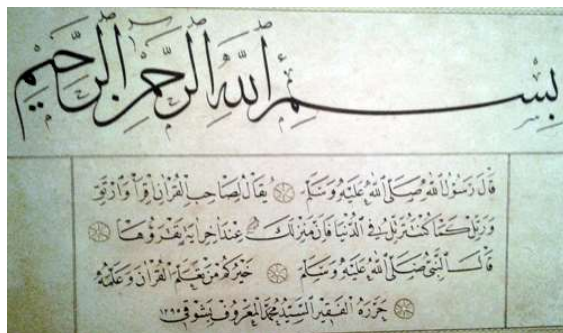 بسم الله الرحمن الرحيم
قال رسول الله صلى الله عليه وسلم يقال لصاحب القرآن اقرأ وارتق
ورتل كما كنت ترتل في الدنيا فان منزلك عند اخر اية تقرؤها
قال النبي صلى الله عليه وسلم خيركم من تعلم القرآن وعلمه
حرره الفقير السيد محمد المعروف بشوقي ١٢٩٥